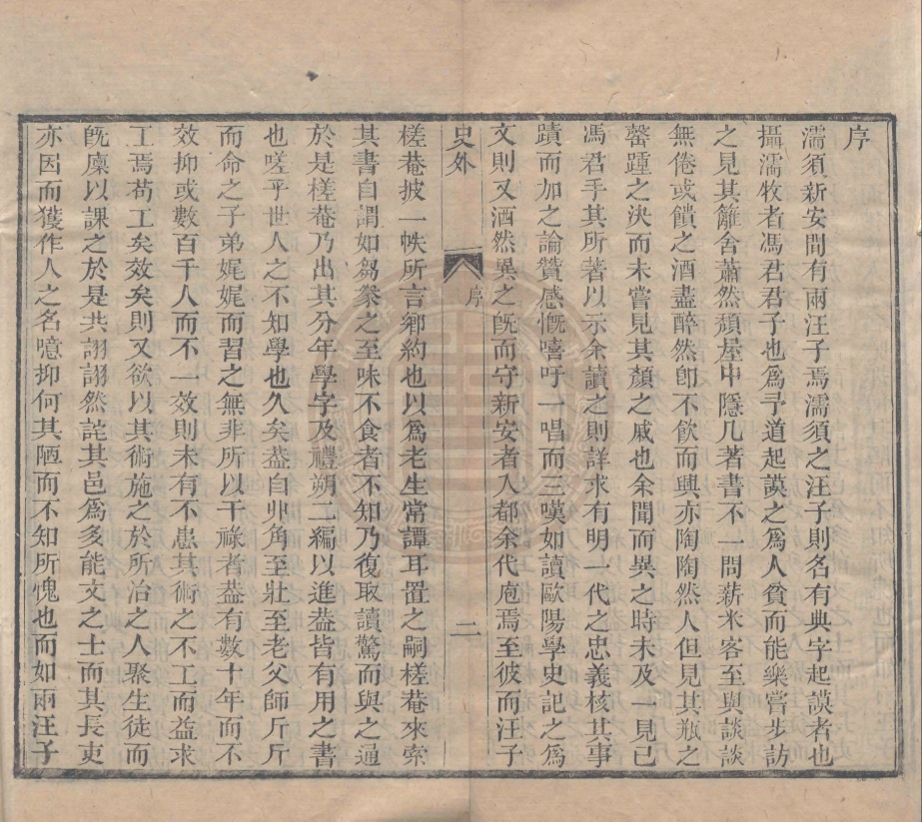 序
濡須新安間有兩汪子焉濡須之汪子則名有典字起謨者也
攝濡牧者馮君君子也為予道起謨之為人貧而能樂嘗步訪
之見其籬舍蕭然頹屋中隱几著書不一問薪米客至與談談
無倦或饋之酒盡醉然卽不飲而興亦陶陶然人但見其瓶之
罄踵之決而未嘗見其顏之戚也余聞而異之時未及一見已
馮君手其所著以示余讀之則詳求有明一代之忠義核其事
蹟而加之論贊感慨嘻吁一唱而三嘆如讀歐陽學史記之為
文則又洒然異之旣而守新安者入都余代庖焉至彼而汪子
史外
序
二
槎菴披一帙所言鄉約也以為老生常譚耳置之嗣槎菴來索
其書自謂如芻豢之至味不食者不知乃復取讀驚而與之通
於是槎菴乃出其分年學字及禮朔二編以進葢皆有用之書
也嗟乎世人之不知學也久矣葢自丱角至壯至老父師斤斤
而命之子弟娓娓而習之無非所以干祿者葢有數十年而不
效抑或數百千人而不一效則未有不患其術之不工而益求
工焉苟工矣效矣則又欲以其術施之於所治之人聚生徒而
旣廩以課之於是共詡詡然詫其邑為多能文之士而其長吏
亦因而獲作人之名噫抑何其陋而不知所愧也而如兩汪子